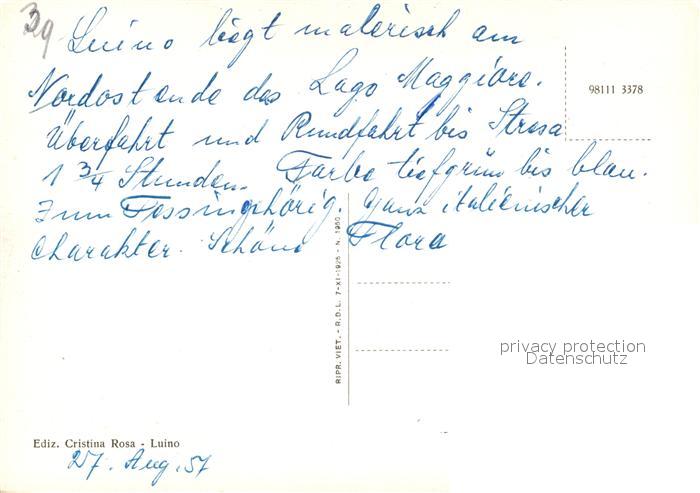 39
Luino liegt malerisch am
Nordostende des Lago Maggiore.
98111 3378
Überfahrt und Rundfahrt bis Stresa
1 3/4 Stunden. Farbe tiefgrün bis blau.
Zum Tessin gehörig. Ganz italienischer
Charakter. Schöne Flora
RIPR. VIET. - R.D.L. 7-XI-1925 - N. 1950
privacy protection
Datenschutz
Ediz. Cristina Rosa - Luino
27. Aug. 57